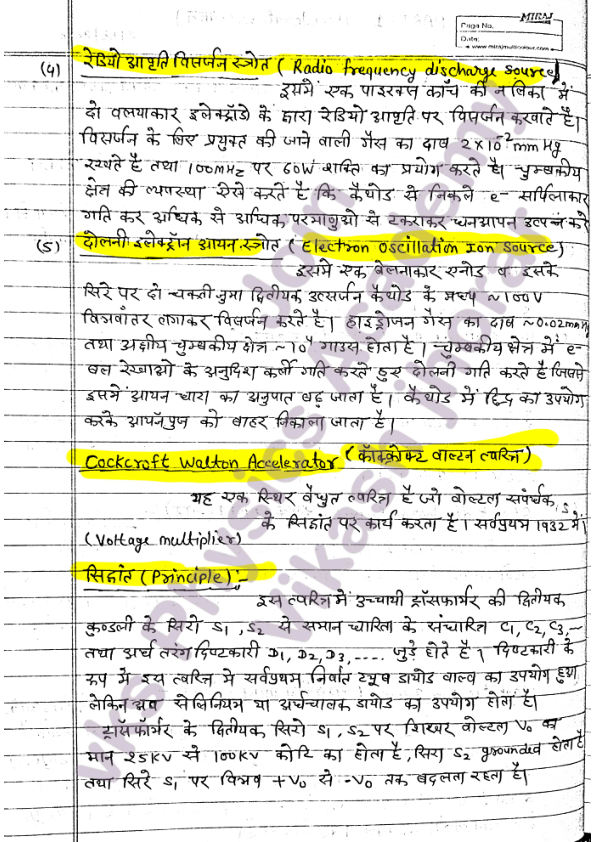 MIRAJ
Page No.
Date:
www.mirajmulticolour.com
(4) रेडियो आवृति विसर्जन स्त्रोत ( Radio frequency discharge source)
इसमें एक पाइरक्स काँच की नलिका में
दो वलयाकार इलेक्ट्रॉडो के द्वारा रेडियो आवृति पर विसर्जन करवाते है।
विसर्जन के लिए प्रयुक्त की जाने वाली गैस का दाब 2×10⁻² mm Hg
रखते है तथा 100MHz पर 60W शक्ति का प्रयोग करते है। चुम्बकीय
क्षेत्र की व्यवस्था ऐसे करते है कि कैथोड से निकले e⁻ सर्पिलाकार
गति कर अधिक से अधिक परमाणुओ से टकराकर धनआयन उत्पन्न करे
(5) दोलनी इलेक्ट्रॉन आयन स्त्रोत ( Electron Oscillation Ion Source)
इसमें एक बेलनाकार एनोड व इसके
सिरे पर दो चकती नुमा द्वितीयक उत्सर्जन कैथोड के मध्य ~100V
विभवांतर लगाकर विसर्जन करते है। हाइड्रोजन गैस का दाब ~0.02mm
तथा अक्षीय चुम्बकीय क्षेत्र ~ 10³ गाउस होता है। चुम्बकीय क्षेत्र में e⁻
बल रेखाओ के अनुदिश गति करते हुए दोलनी गति करते है जिससे
इसमें आयन धारा का अनुपात बढ़ जाता है। कैथोड में छिद्र का उपयोग
करके आयनपुंज को बाहर निकाला जाता है।
Cockcroft Walton Accelerator (कॉक्रोफ्ट वाल्टन त्वरित्र)
यह एक स्थिर वैधुत त्वरित्र है जो वोल्टता संवर्धक
के सिद्धांत पर कार्य करता है। सर्वप्रथम 1932 में।
(Voltage multiplier)
सिद्धांत (Principle):-
इस त्वरित्र में उच्चायी ट्रॉसफार्मर की द्वितीयक
कुण्डली के सिरो S₁, S₂ से समान धारिता के संधारित्र C₁, C₂, C₃, --
तथा अर्ध तरंग दिष्टकारी D₁, D₂, D₃, .... जुड़े होते है। दिष्टकारी के
रूप में इस त्वरित्र में सर्वप्रथम निर्वात ट्यूब डायोड वाल्व का उपयोग हुआ
लेकिन अब सेलिनियम या अर्धचालक डायोड का उपयोग होता है।
ट्रॉसफॉर्मर के द्वितीयक सिरो S₁, S₂ पर शिखर वोल्टता V₀ का
मान 25KV से 100KV कोटि का होता है, सिरा S₂ grounded होता है
तथा सिरे S₁ पर विभव +V₀ से -V₀ तक बदलता रहता है।
Join
vks Physics Academy